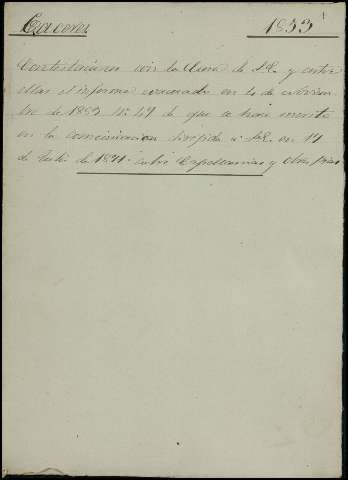 Caceres 1853 1
Contestaciones con la Curia de S.E. y entre
ellas el informe evacuado en 4 de Noviem
bre de 1853 N. 49 de que se hace merito
en la comunicacion dirijida a S.E. en 14
de Julio de 1871 sobre Capellanias y obras pias